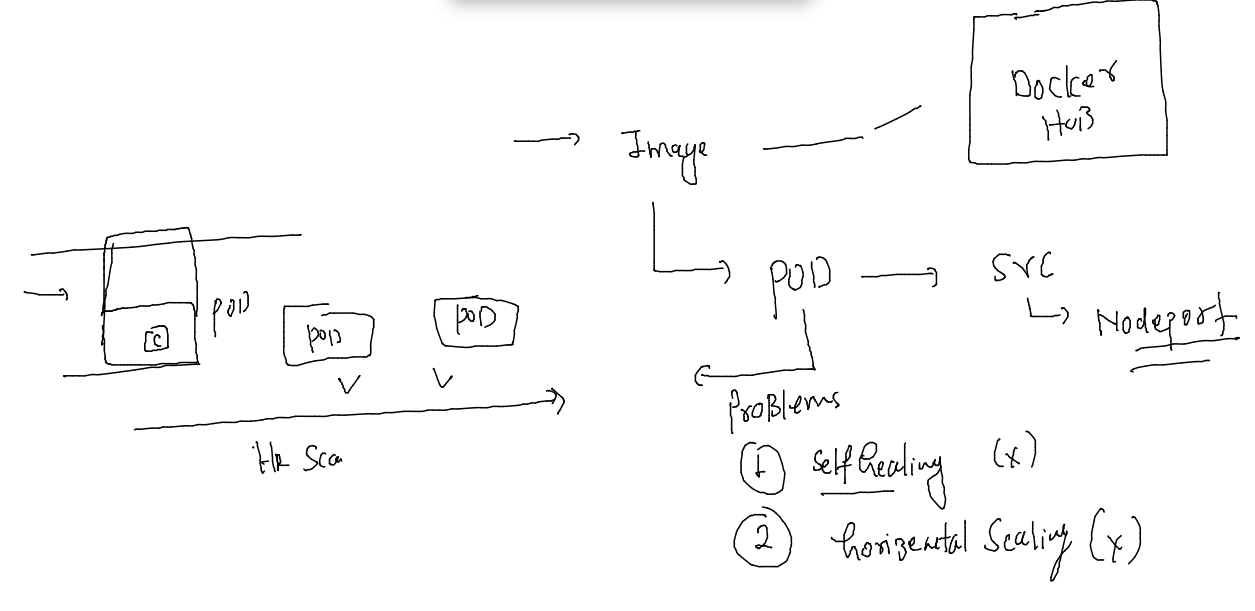 Docker
HUB
Image
POD
SVC
Nodeport
POD
C
POD
POD
Problems
1 self healing (x)
2 horizental Scaling (x)